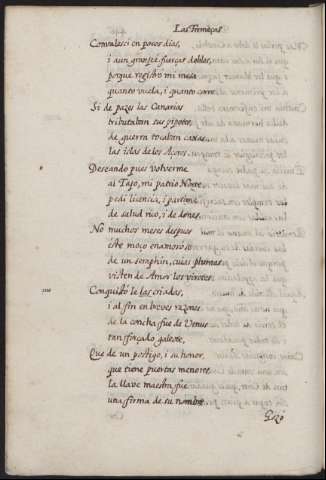 Las Firmezas
Convaleci en pocos dias,
i aun grangeè fuerças dobles,
porque registrò mi mesa
quanto vuela, i quanto corre.
Si de pazes las Canarias
tributaban sus pipotes,
de guerra tocaban caxas
las islas de los Açores.
Deseando pues volverme
al Tajo, mi patrio Norte
pedi licencia, i partime
de salud rico, i de dones.
No muchos meses despues
este moço enamorose
de un seraphin, cuias plumas
visten de Amor los virotes.
Conquistò le las criadas,
i al fin en breves razones
de la concha fue de Venus
tansfregado galeote,
Que de un postigo, i su honor,
que tiene puertas menores
la llave maestra fue
una firma de su nombre.
Gozò